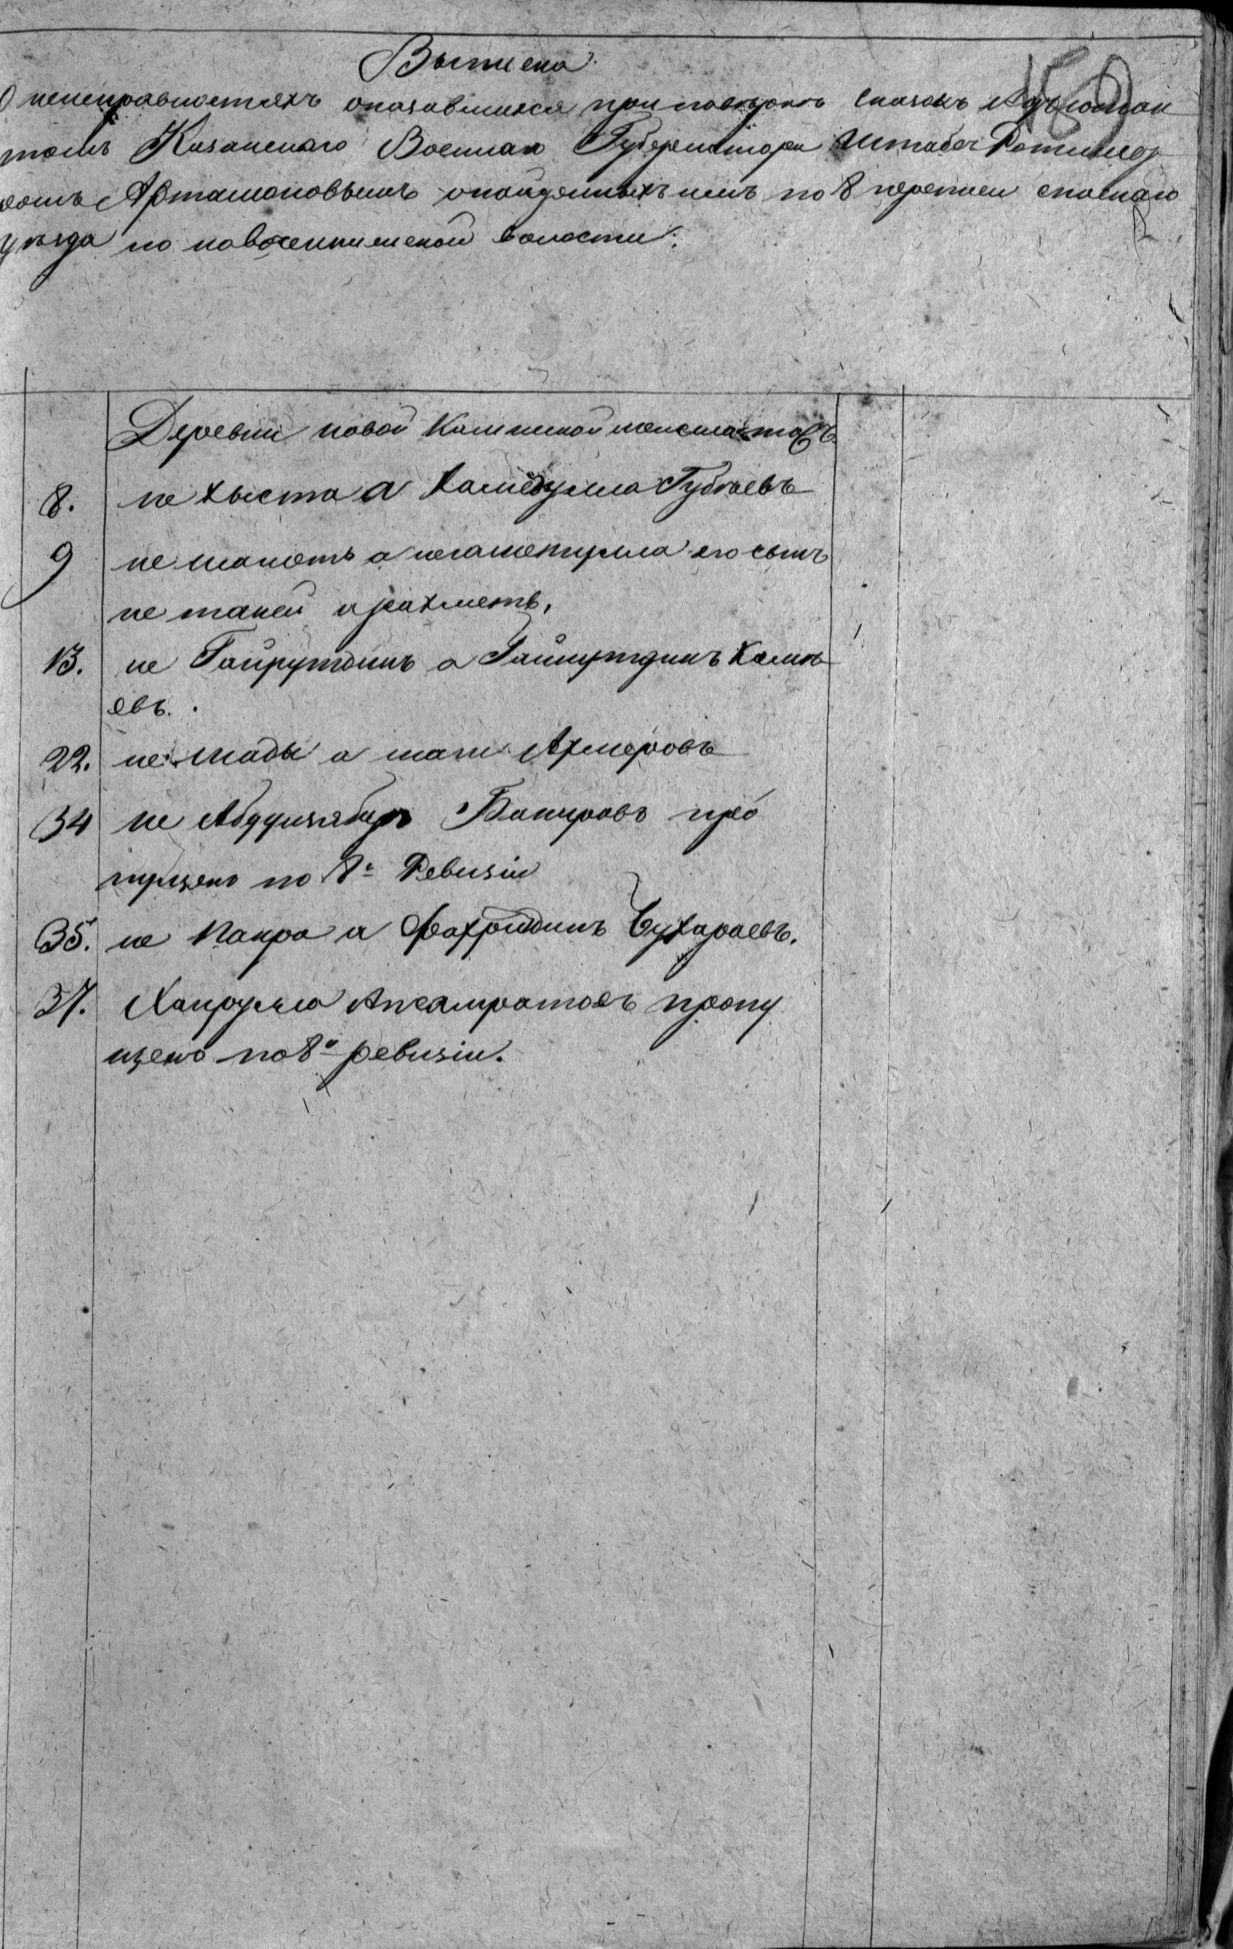 Выписка.
О неисправностяхъ оказавшихся при поверке сказокъ Адъютан
томъ Казанскаго Военнаго Губернатора Штабсъ Ротмистр
ромъ Артамоновымъ и найденныхъ имъ по 8 переписи спаскаго
уезда по новочекмеской волости.
Деревни новой Камкиной
8. не хыста а Хамедулла Губаевъ
9 не а его сынъ
не таней а рахметъ,
13. не Гайрутдинъ а Гайнутдинъ Калме
евъ.
22. не шады а шаги Ахмеровъ
34 не Абдулзябаръ Бакировъ про
пущено по 8й Ревизiи
35. не Напра а Фахрутдинъ Бухараевъ.
37. Хайрулла пропу
щено по 8й ревизiи.